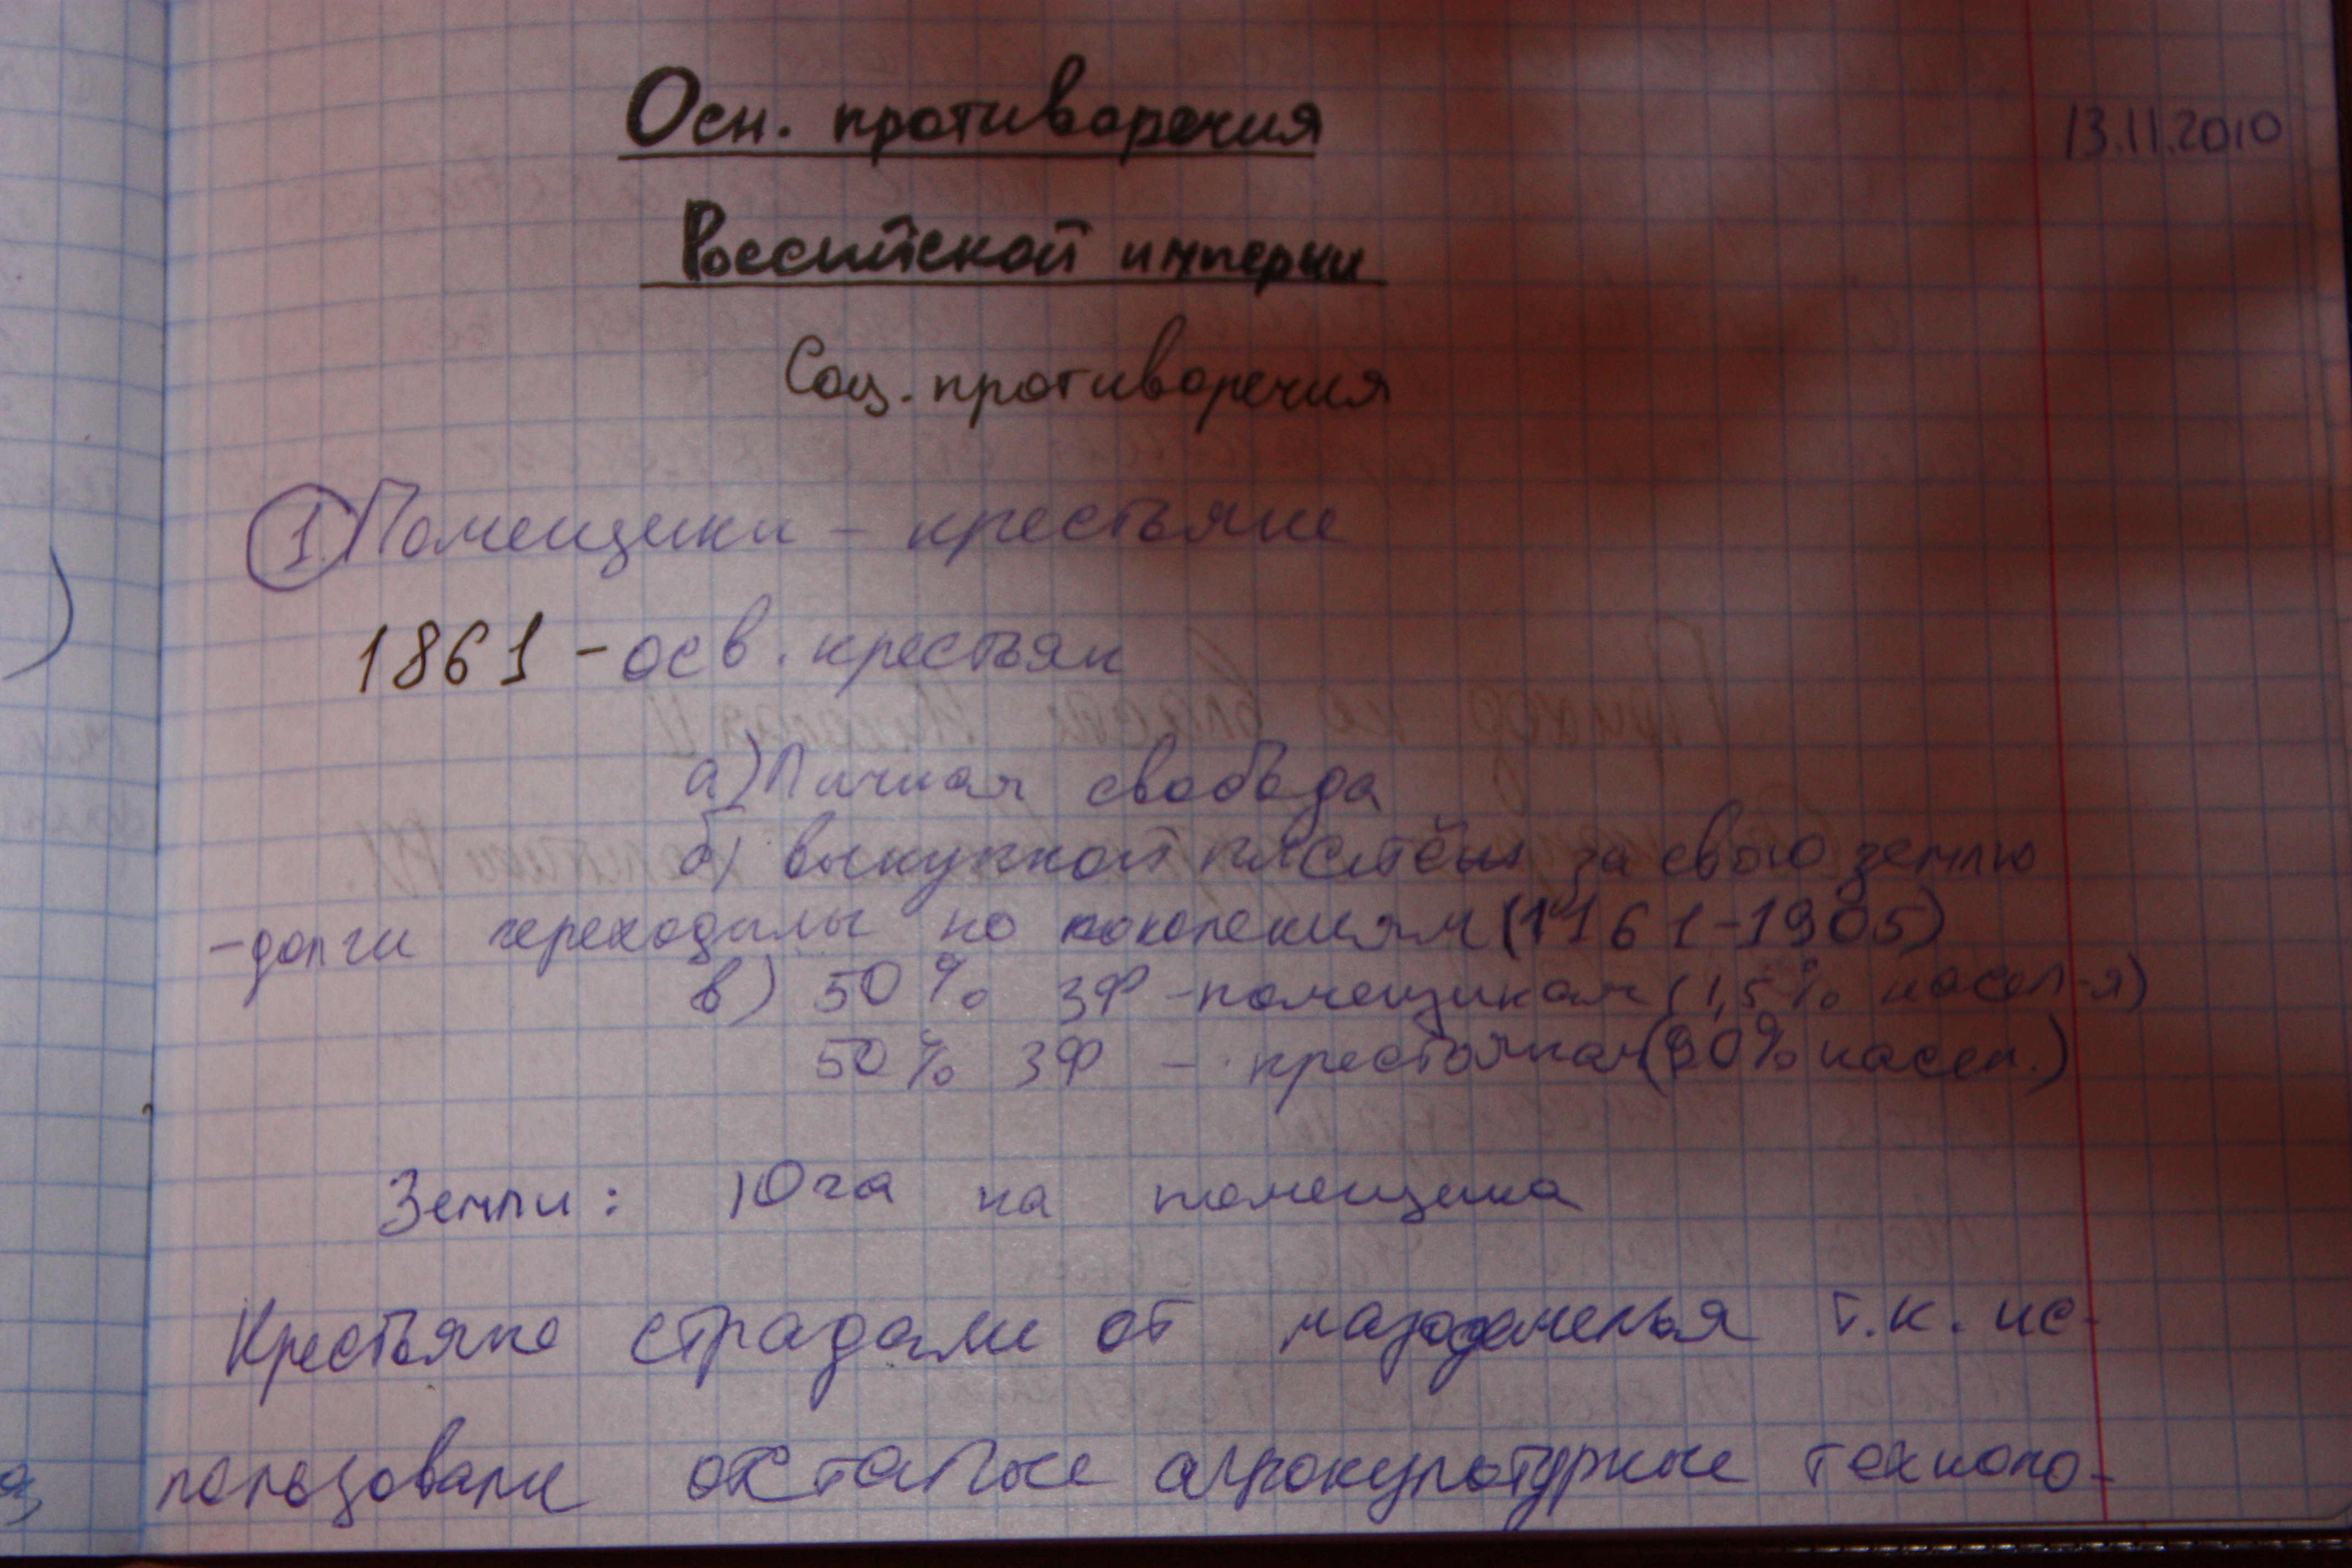 13.11.2010
Осн. противоречия
Российской империи
Соц. противоречия
1. Помещики – крестьяне
1861 – осв. крестьян
а) Личная свобода
б) выкупной за свою землю
– долги переходилы по поколениям (1161–1905)
в) 50% ЗФ – помещикам (1,5% насел-я)
50% ЗФ – крестьянам (90% насел.)
Земли: 10га на помещика
Крестьяне страдали от т.к. ис-
пользовали отсталые агрокультурные техноло-